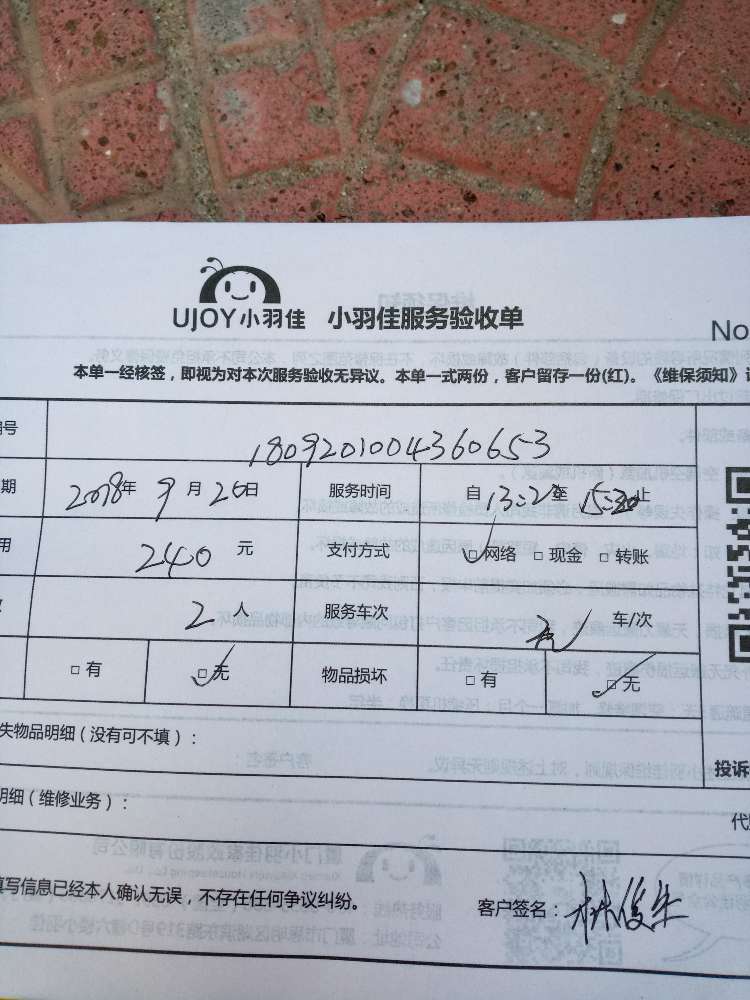 UJOY小羽佳 小羽佳服务验收单
No
本单一经核签，即视为对本次服务验收无异议。本单一式两份，客户留存一份(红)。《维保须知》
号 1809201004360653
期 2018年 9月 20日 服务时间 自 13:2 至 15:20 止
用 240 元 支付方式 ☑网络 □现金 □转账
2 人 服务车次 无 车/次
□有 ☑无 物品损坏 □有 ☑无
失物品明细（没有可不填）：
投诉
明细（维修业务）：
代
填写信息已经本人确认无误，不存在任何争议纠纷。 客户签名：林俊生